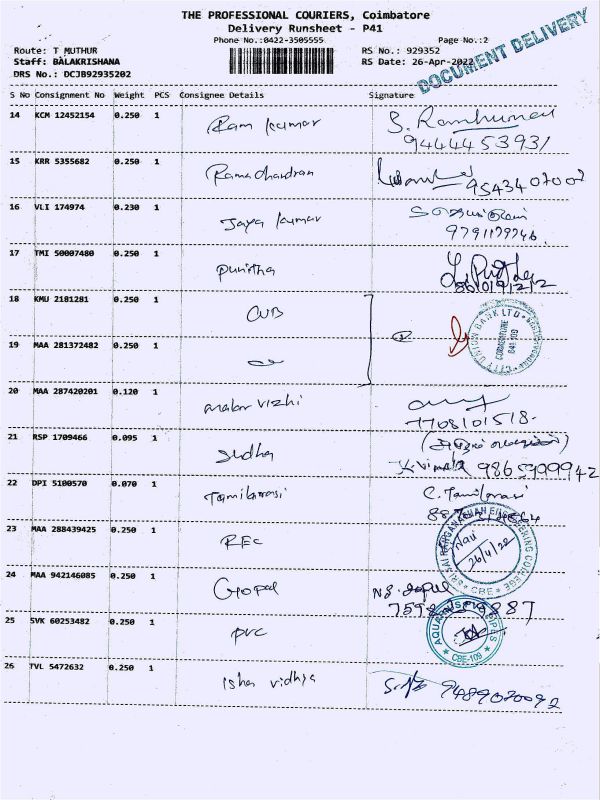 THE PROFESSIONAL COURIERS, Coimbatore
Delivery Runsheet - P41
Phone No.:0422-3505555 Page No.:2
DOCUMENT DELIVERY
Route: T MUTHUR RS No.: 929352
Staff: BALAKRISHANA RS Date: 26-Apr-2022
DRS No.: DCJB92935202
S No Consignment No Weight PCS Consignee Details Signature
14 KCM 12452154 0.250 1 Ram kumar S. Ramkumar
9444453931
15 KRR 5355682 0.250 1 Ramachandran 9543407007
16 VLI 174974 0.230 1 Jaya kumar
9791179746
17 TMI 50007480 0.250 1 Punitha
18 KMU 2181281 0.250 1 CUB
CITY UNION BANK LTD
COIMBATORE
641 109
19 MAA 281372482 0.250 1
20 MAA 287420201 0.120 1 malar vizhi
7708101518-
21 RSP 1709466 0.095 1 Sudha
K. Vimala 9865999942
22 DPI 5100570 0.070 1 Tamilarasi C. Tamilarasi
23 MAA 288439425 0.250 1 REC
SRI SAI RANGANATHAN ENGINEERING COLLEGE
26/4/22
CBE
24 MAA 942146085 0.250 1 Gopal N.S. Gopal
25 SVK 60253482 0.250 1 PVC
CBE-109
26 TVL 5472632 0.250 1 Isha vidhya 9489020092